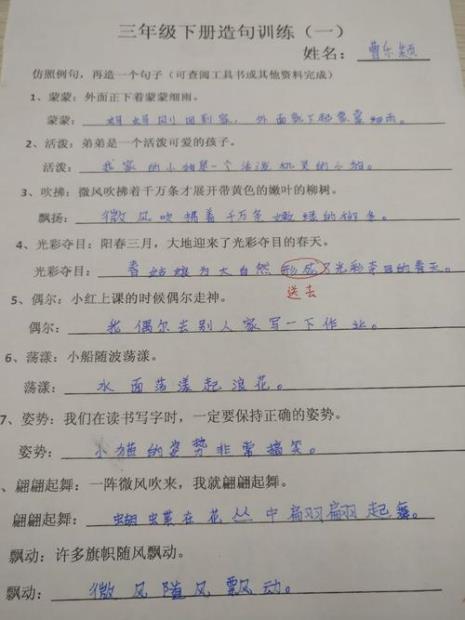 三年级下册造句训练（一）
姓名：曹乐颖
仿照例句，再造一个句子（可查阅工具书或其他资料完成）
1、蒙蒙：外面正下着蒙蒙细雨。
蒙蒙：妈妈刚回到家，外面就下起蒙蒙细雨。
2、活泼：弟弟是一个活泼可爱的孩子。
活泼：我家的小猫是一个活泼机灵的小猫。
3、吹拂：微风吹拂着千万条才展开带黄色的嫩叶的柳树。
飘扬：微风吹拂着千万条嫩绿的柳条。
4、光彩夺目：阳春三月，大地迎来了光彩夺目的春天。
光彩夺目：春姑娘为大自然形成了光彩夺目的春天。
送去
5、偶尔：小红上课的时候偶尔走神。
偶尔：我偶尔去别人家写一下作业。
6、荡漾：小船随波荡漾。
荡漾：水面荡漾起浪花。
7、姿势：我们在读书写字时，一定要保持正确的姿势。
姿势：小猫的姿势非常搞笑。
、翩翩起舞：一阵微风吹来，我就翩翩起舞。
翩翩起舞：蝴蝶在花丛中翩翩起舞。
飘动：许多旗帜随风飘动。
飘动：微风随风飘动。